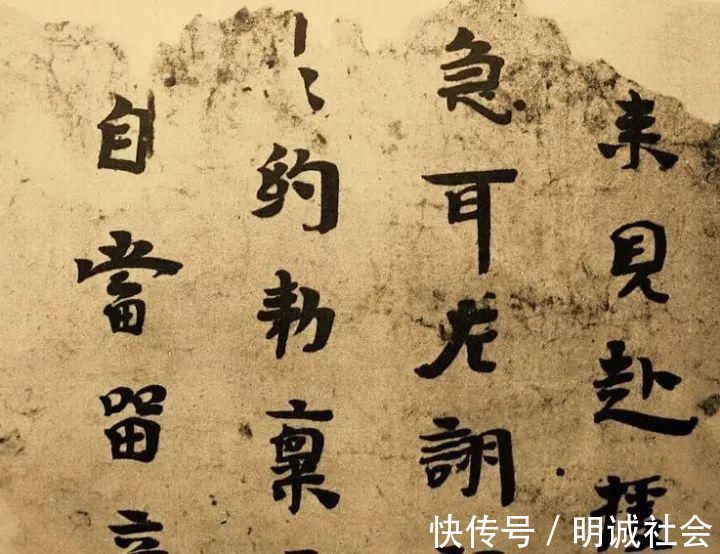 来見赴
急耳詡
約勑稟
自當留
快传号 / 明诚社会